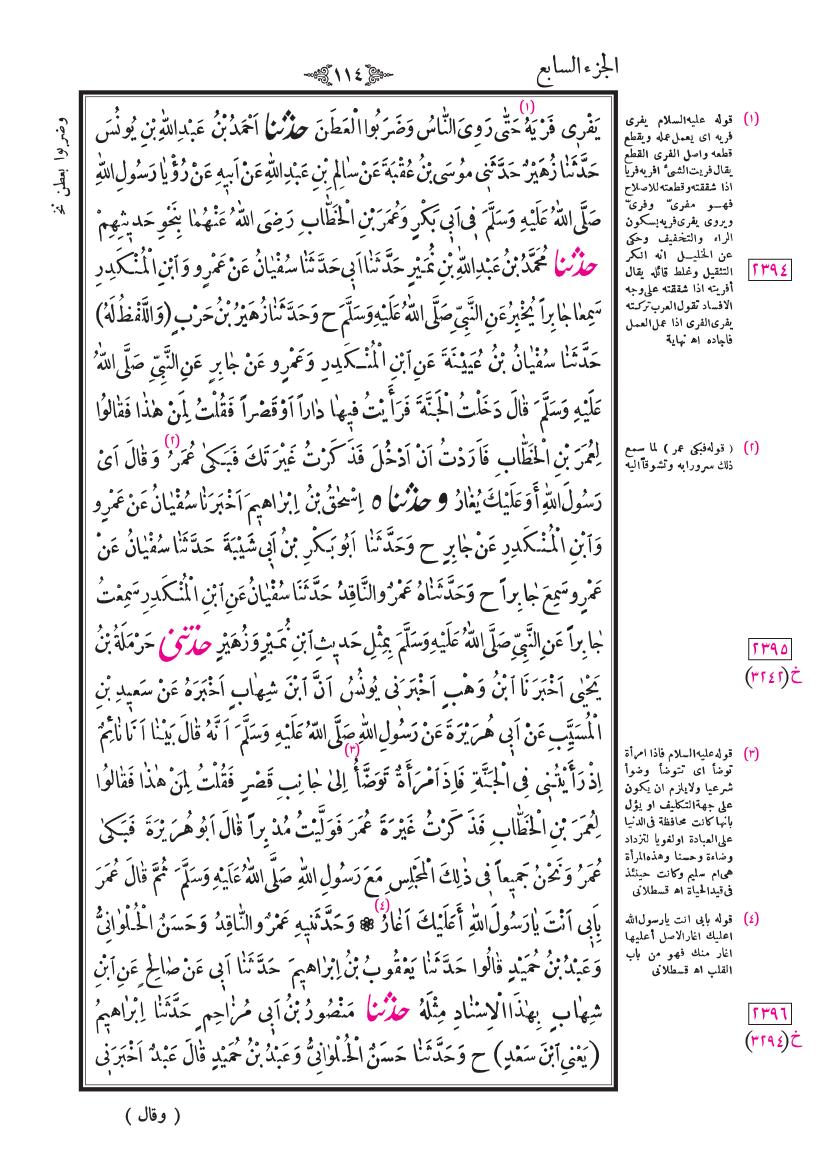 الجزء السابع
١١٤
يَفْرِى فَرْيَهُ (١) حَتّٰى رَوِىَ النَّاسُ وَضَرَبُوا الْعَطَنَ حدثنا اَحْمَدُ بْنُ عَبْدِ اللّٰهِ بْنِ يُونُسَ
حَدَّثَنَا زُهَيْرٌ حَدَّثَنِى مُوسَى بْنُ عُقْبَةَ عَنْ سَالِمِ بْنِ عَبْدِ اللّٰهِ عَنْ اَبِيهِ عَنْ رُؤْيَا رَسُولِ اللّٰهِ
صَلَّى اللّٰهُ عَلَيْهِ وَسَلَّمَ فِى اَبِى بَكْرٍ وَعُمَرَ بْنِ الْخَطَّابِ رَضِىَ اللّٰهُ عَنْهُمَا بِنَحْوِ حَدِيثِهِمْ
حدثنا مُحَمَّدُ بْنُ عَبْدِ اللّٰهِ بْنِ نُمَيْرٍ حَدَّثَنَا اَبِى حَدَّثَنَا سُفْيَانُ عَنْ عَمْرٍو وَابْنِ الْمُنْكَدِرِ
سَمِعَا جَابِراً يُخْبِرُ عَنِ النَّبِىِّ صَلَّى اللّٰهُ عَلَيْهِ وَسَلَّمَ ح وَحَدَّثَنَا زُهَيْرُ بْنُ حَرْبٍ (وَاللَّفْظُ لَهُ)
حَدَّثَنَا سُفْيَانُ بْنُ عُيَيْنَةَ عَنِ ابْنِ الْمُنْكَدِرِ وَعَمْرٍو عَنْ جَابِرٍ عَنِ النَّبِىِّ صَلَّى اللّٰهُ
عَلَيْهِ وَسَلَّمَ قَالَ دَخَلْتُ الْجَنَّةَ فَرَأَيْتُ فِيهَا دَاراً اَوْ قَصْراً فَقُلْتُ لِمَنْ هٰذَا فَقَالُوا
لِعُمَرَ بْنِ الْخَطَّابِ فَاَرَدْتُ اَنْ اَدْخُلَ فَذَكَرْتُ غَيْرَتَكَ فَبَكٰى عُمَرُ (٢) وَقَالَ اَىْ
رَسُولَ اللّٰهِ أَوَ عَلَيْكَ يُغَارُ وحدثناه اِسْحٰقُ بْنُ اِبْرَاهِيمَ اَخْبَرَنَا سُفْيَانُ عَنْ عَمْرٍو
وَابْنِ الْمُنْكَدِرِ عَنْ جَابِرٍ ح وَحَدَّثَنَا اَبُو بَكْرِ بْنُ اَبِى شَيْبَةَ حَدَّثَنَا سُفْيَانُ عَنْ
عَمْرٍو سَمِعَ جَابِراً ح وَحَدَّثَنَاهُ عَمْرٌو النَّاقِدُ حَدَّثَنَا سُفْيَانُ عَنِ ابْنِ الْمُنْكَدِرِ سَمِعْتُ
جَابِراً عَنِ النَّبِىِّ صَلَّى اللّٰهُ عَلَيْهِ وَسَلَّمَ بِمِثْلِ حَدِيثِ ابْنِ نُمَيْرٍ وَزُهَيْرٍ حدثنى حَرْمَلَةُ بْنُ
يَحْيٰى اَخْبَرَنَا ابْنُ وَهْبٍ اَخْبَرَنِى يُونُسُ اَنَّ ابْنَ شِهَابٍ اَخْبَرَهُ عَنْ سَعِيدِ بْنِ
الْمُسَيِّبِ عَنْ اَبِى هُرَيْرَةَ عَنْ رَسُولِ اللّٰهِ صَلَّى اللّٰهُ عَلَيْهِ وَسَلَّمَ اَنَّهُ قَالَ بَيْنَا اَنَا نَائِمٌ
اِذْ رَأَيْتُنِى فِى الْجَنَّةِ فَاِذَا امْرَأَةٌ تَوَضَّأُ (٣) اِلىٰ جَانِبِ قَصْرٍ فَقُلْتُ لِمَنْ هٰذَا فَقَالُوا
لِعُمَرَ بْنِ الْخَطَّابِ فَذَكَرْتُ غَيْرَةَ عُمَرَ فَوَلَّيْتُ مُدْبِراً قَالَ اَبُو هُرَيْرَةَ فَبَكٰى
عُمَرُ وَنَحْنُ جَمِيعاً فِى ذٰلِكَ الْمَجْلِسِ مَعَ رَسُولِ اللّٰهِ صَلَّى اللّٰهُ عَلَيْهِ وَسَلَّمَ ثُمَّ قَالَ عُمَرَ
بِاَبِى اَنْتَ يَا رَسُولَ اللّٰهِ أَعَلَيْكَ اَغَارُ (٤) ❁ وَحَدَّثَنِيهِ عَمْرٌو النَّاقِدُ وَحَسَنٌ الْحُلْوَانِىُّ
وَعَبْدُ بْنُ حُمَيْدٍ قَالُوا حَدَّثَنَا يَعْقُوبُ بْنُ اِبْرَاهِيمَ حَدَّثَنَا اَبِى عَنْ صَالِحٍ عَنِ ابْنِ
شِهَابٍ بِهٰذَا الْاِسْنَادِ مِثْلَهُ حدثنا مَنْصُورُ بْنُ اَبِى مُزَاحِمٍ حَدَّثَنَا اِبْرَاهِيمُ
(يَعْنِى ابْنَ سَعْدٍ) ح وَحَدَّثَنَا حَسَنٌ الْحُلْوَانِىُّ وَعَبْدُ بْنُ حُمَيْدٍ قَالَ عَبْدٌ اَخْبَرَنِى
(١) قوله عليه السلام يفرى
فريه اى يعمل عمله ويقطع
قطعه واصل الفرى القطع
يقال فريت الشىء افريه فريا
اذا شققته وقطعته للاصلاح
فهو مفرىّ وفرىّ
ويروى يفرى فريه بسكون
الراء والتخفيف وحكى
عن الخليل انه انكر
التثقيل وغلط قائله يقال
أفريته اذا شققته على وجه
الافساد تقول العرب تركته
يفرى الفرى اذا عمل العمل
فاجاده اه نهاية
٢٣٩٤
(٢) (قوله فبكى عمر) لما سمع
ذلك سرورا به وتشوقا اليه
٢٣٩٥
خ (٣٢٤٢)
(٣) قوله عليه السلام فاذا امرأة
توضأ اى تتوضأ وضوأ
شرعيا ولا يلزم ان يكون
على جهة التكليف او يؤل
بانها كانت محافظة فى الدنيا
على العبادة او لغويا لتزداد
وضاءة وحسنا وهذه المرأة
هى ام سليم وكانت حينئذ
فى قيد الحياة اه قسطلانى
(٤) قوله بابى انت يارسول الله
اعليك اغار الاصل أعليها
اغار منك فهو من باب
القلب اه قسطلانى
٢٣٩٦
خ (٣٢٩٤)
وضربوا بعطن نخ
( وقال )